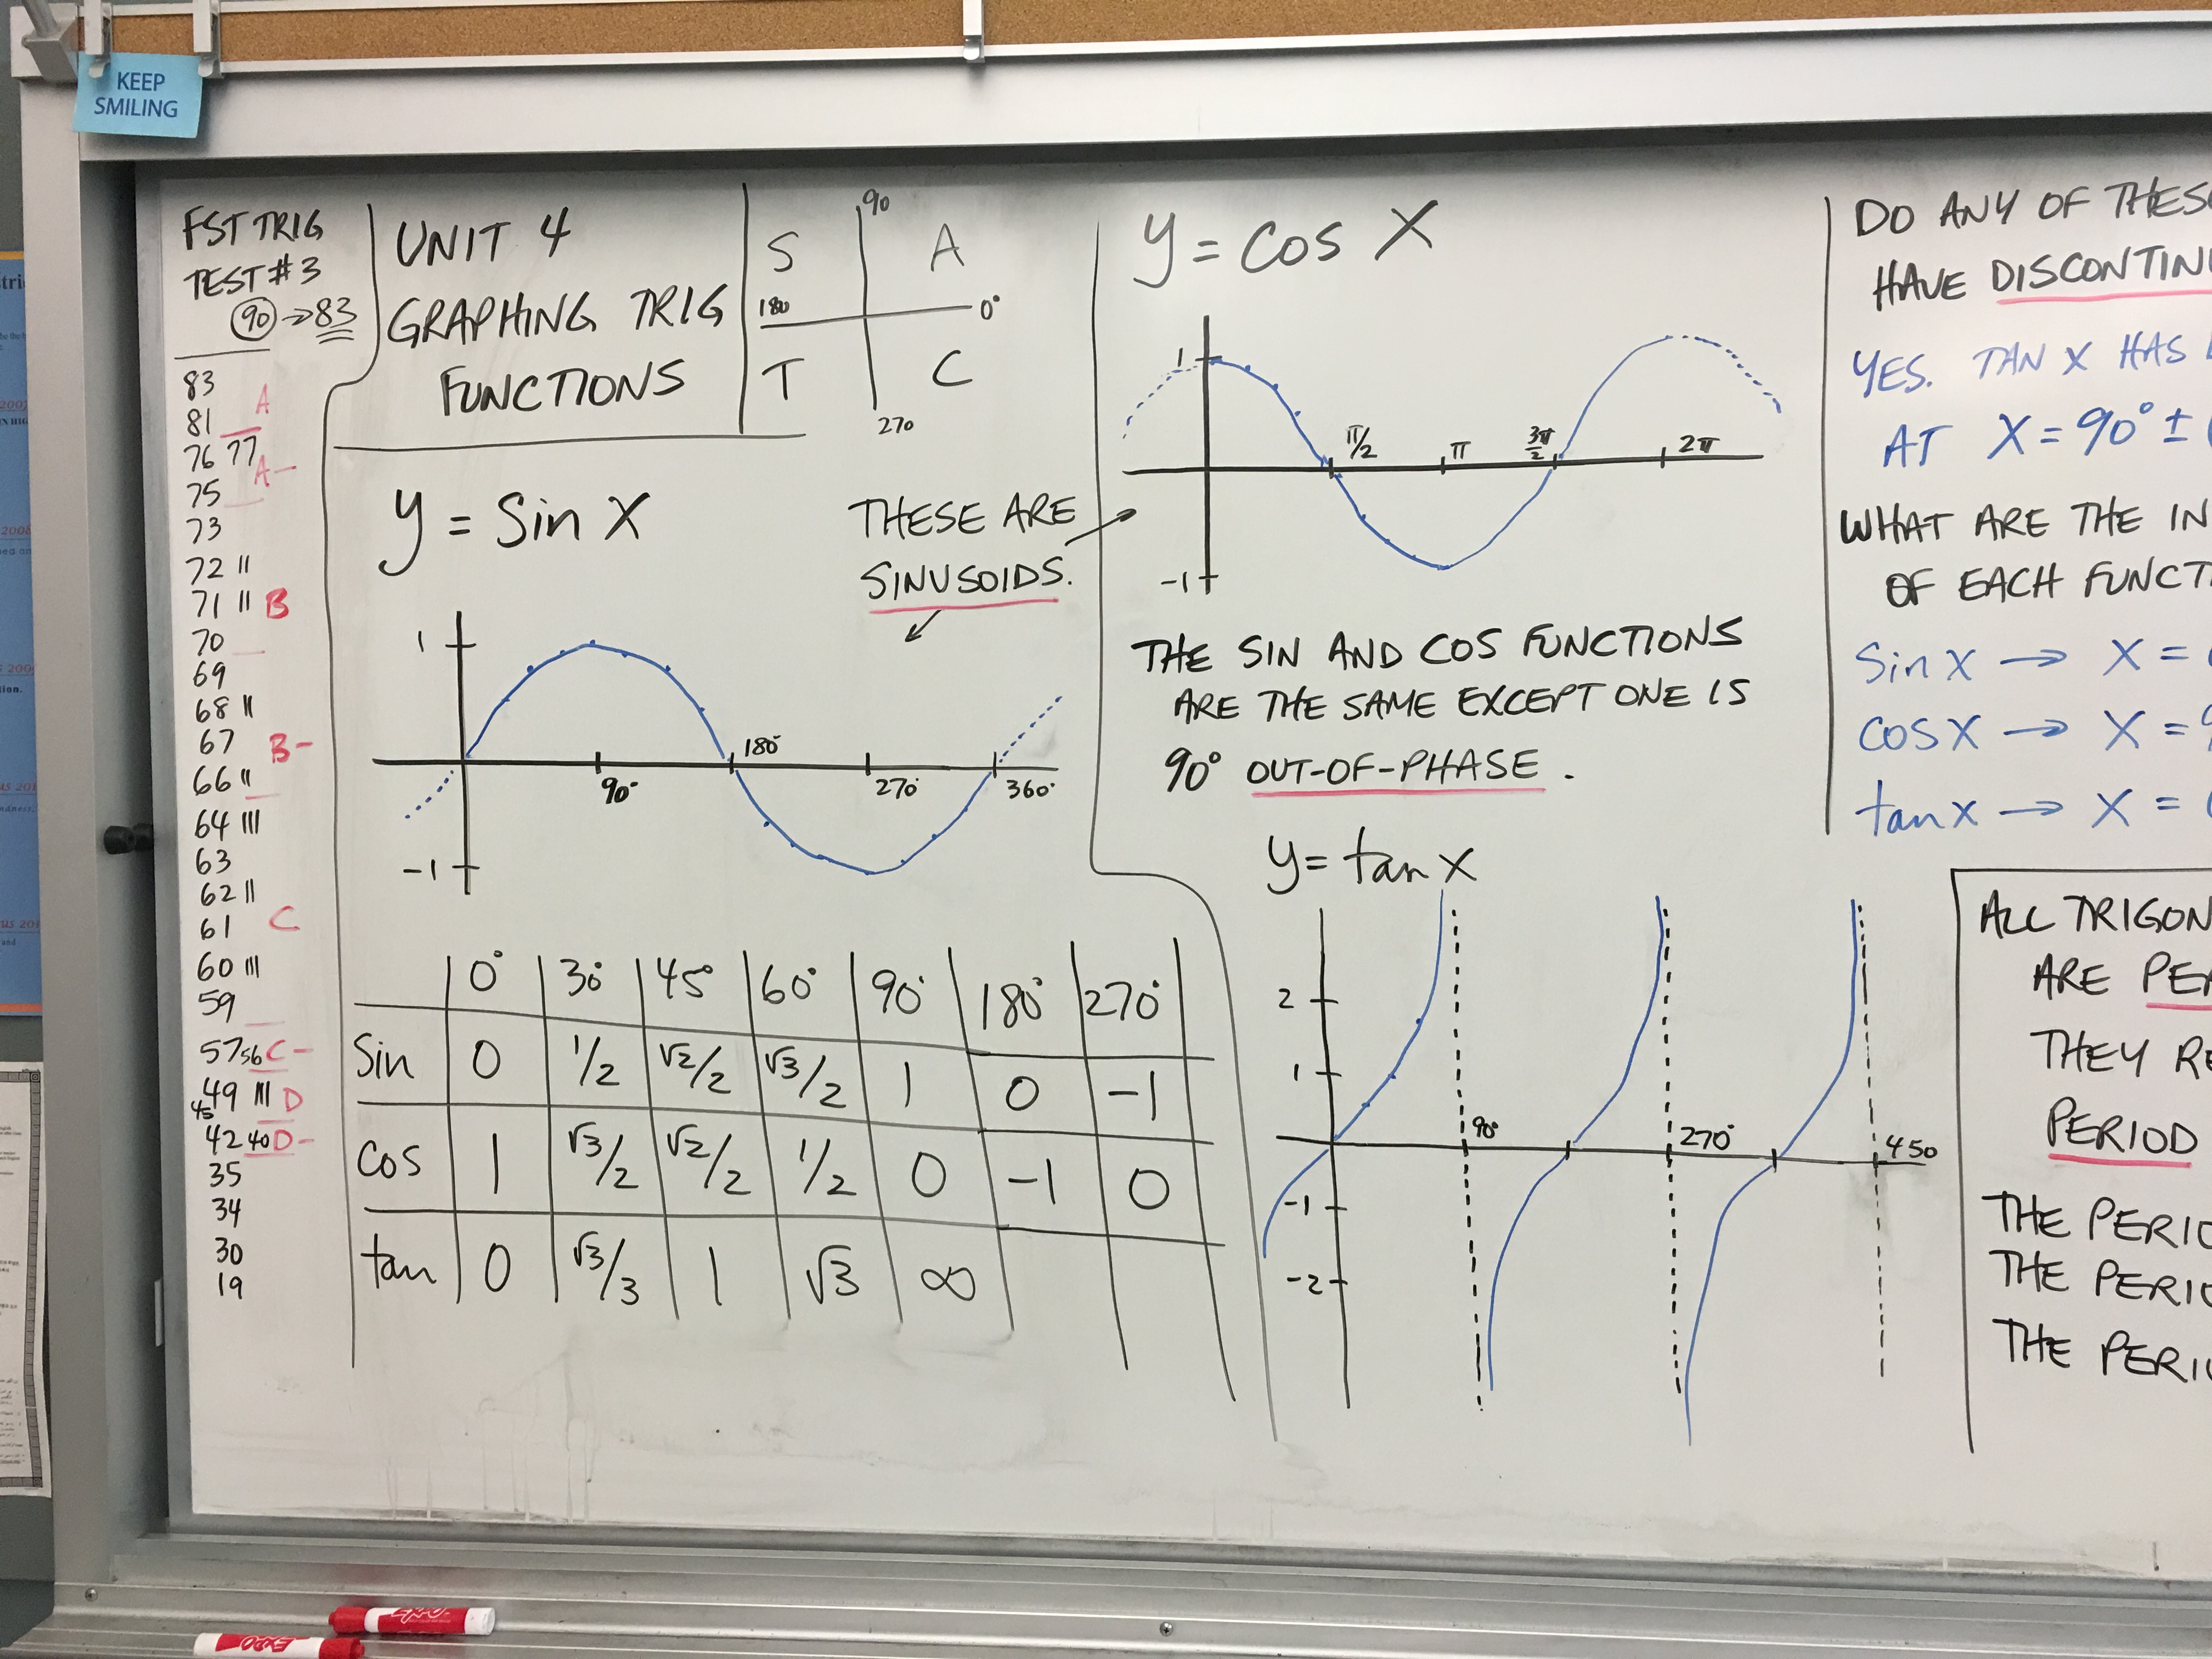 KEEP
SMILING
FST TRIG
TEST #3
90 → 83
83
81 A
76 77
A-
75
73
72 ||
71 || B
70
69
68 ||
67 B-
66 ||
64 |||
63
62 ||
61 C
60 |||
59
57 56 C-
45 49 ||| D
42 40 D-
35
34
30
19
UNIT 4
GRAPHING TRIG
FUNCTIONS
90
S A
180 0°
T C
270
y = sin x
THESE ARE
SINUSOIDS.
1
180°
90° 270° 360°
-1
0° 30° 45° 60° 90° 180° 270°
Sin 0 1/2 √2/2 √3/2 1 0 -1
Cos 1 √3/2 √2/2 1/2 0 -1 0
tan 0 √3/3 1 √3 ∞
y = cos x
1
π/2 π 3π/2 2π
-1
THE SIN AND COS FUNCTIONS
ARE THE SAME EXCEPT ONE IS
90° OUT-OF-PHASE.
y = tan x
2
1
90° 270° 450
-1
-2
DO ANY OF THES
HAVE DISCONTINU
YES. TAN X HAS
AT X = 90° ± (
WHAT ARE THE IN
OF EACH FUNCT
Sin x → X =
cos x → X = 9
tan x → X =
ALL TRIGON
ARE PE
THEY RE
PERIOD
THE PERIO
THE PERIO
THE PERI
EXPO
EXPO